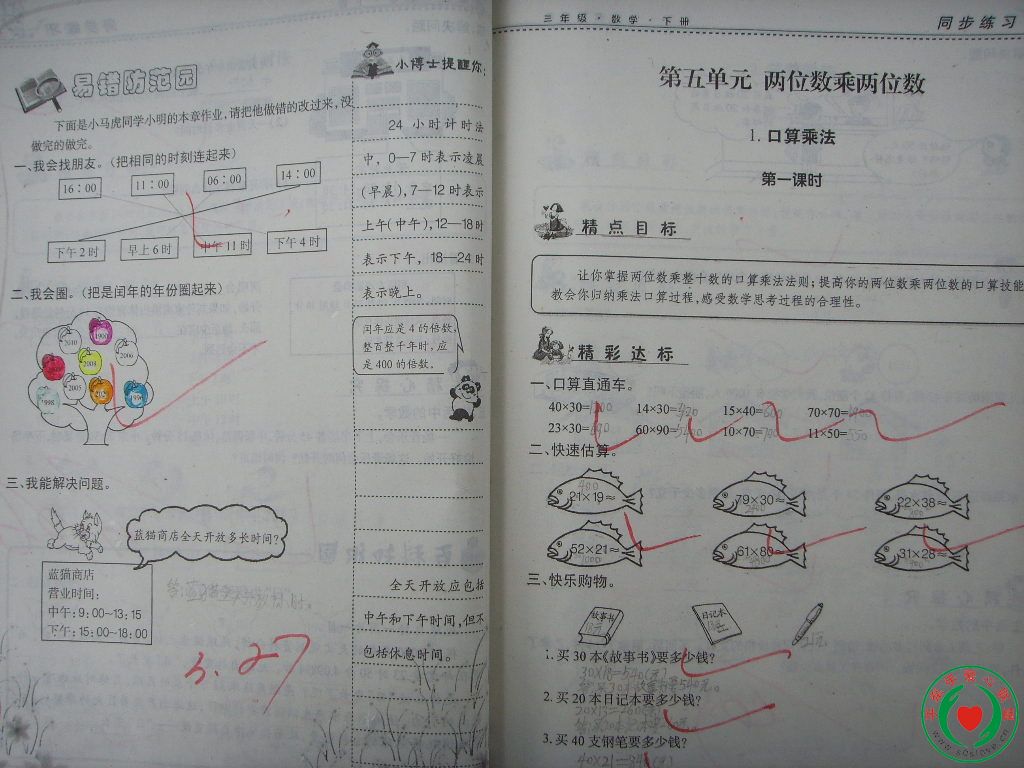 易错防范园
下面是小马虎同学小明的本章作业，请把他做错的改过来，没
做完的做完。
一、我会找朋友。（把相同的时刻连起来）
16：00 11：00 06：00 14：00
下午2时 早上6时 中午11时 下午4时
二、我会圈。（把是闰年的年份圈起来）
1900
2010 2006
2008
2005
1998 1996
三、我能解决问题。
蓝猫商店全天开放多长时间？
蓝猫商店
营业时间：
中午：9：00~13：15
下午：15：00~18：00
3.27
小博士提醒你：
24 小时计时法
中，0—7 时表示凌晨
(早晨)，7—12 时表示
上午(中午)，12—18 时
表示下午，18—24 时
表示晚上。
闰年应是 4 的倍数，
整百整千年时，应
是 400 的倍数。
全天开放应包括
中午和下午时间，但不
包括休息时间。
三年级·数学·下册
同步练习
第五单元 两位数乘两位数
1. 口算乘法
第一课时
精点目标
让你掌握两位数乘整十数的口算乘法法则；提高你的两位数乘两位数的口算技能
教会你归纳乘法口算过程，感受数学思考过程的合理性。
精彩达标
一、口算直通车。
40×30= 14×30= 15×40=600 70×70=
23×30=690 60×90= 10×70=700 11×50=550
二、快速估算。
400
21×19≈ 79×30≈ 22×38≈
2400
52×21≈ 61×80≈ 31×28≈
1000
三、快乐购物。
故事书 日记本
21元
1. 买 30 本《故事书》要多少钱？
30×18=540(元)
2. 买 20 本日记本要多少钱？
3. 买 40 支钢笔要多少钱？
40×21=840(元)
www.sqslove.cn